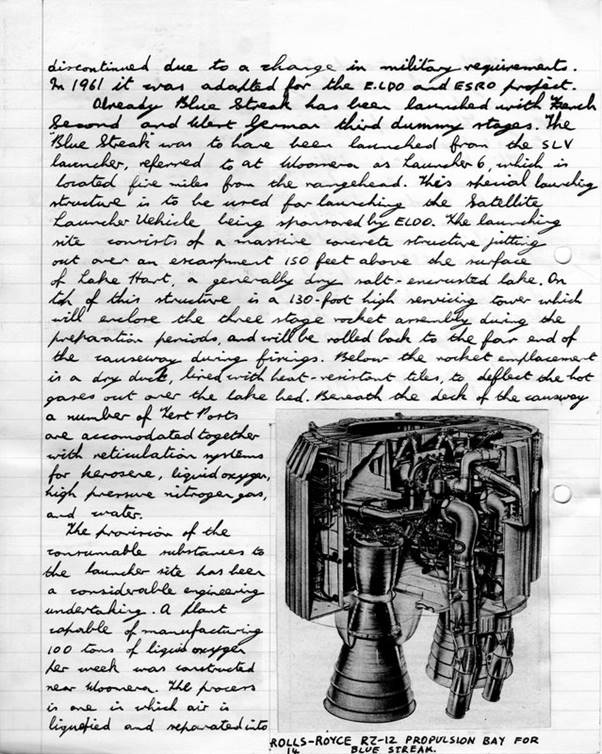 discontinued due to a change in military requirements.
In 1961 it was adapted for the E.LDO and ESRO project.
Already Blue Streak has been launched with French
Second and West German third dummy stages. The
Blue Streak was to have been launched from the SLV
launcher, referred to at Woomera as Launcher 6, which is
located five miles from the rangehead. This special launching
structure is to be used for launching the Satellite
Launcher Vehicle being sponsored by ELDO. The launching
site consists of a massive concrete structure jutting
out over an escarpment 150 feet above the surface
of Lake Hart, a generally dry salt-encrusted lake. On
top of this structure is a 130-foot high servicing tower which
will enclose the three stage rocket assembly during the
preparation periods, and will be rolled back to the far end of
the causeway during firings. Below the rocket emplacement
is a dry duct, lined with heat-resistant tiles, to deflect the hot
gases out over the lake bed. Beneath the deck of the causway
a number of Test Posts
are accomodated together
with reticulation systems
for kerosene, liquid oxygen,
high pressure nitrogen gas,
and water.
The provision of the
consumable substances to
the launcher site has been
a considerable engineering
undertaking. A plant
capable of manufacturing
100 tons of liquid oxygen
per week was constructed
near Woomera. The process
is one in which air is
liquefied and separated into
ROLLS-ROYCE RZ-12 PROPULSION BAY FOR
BLUE STREAK.
14